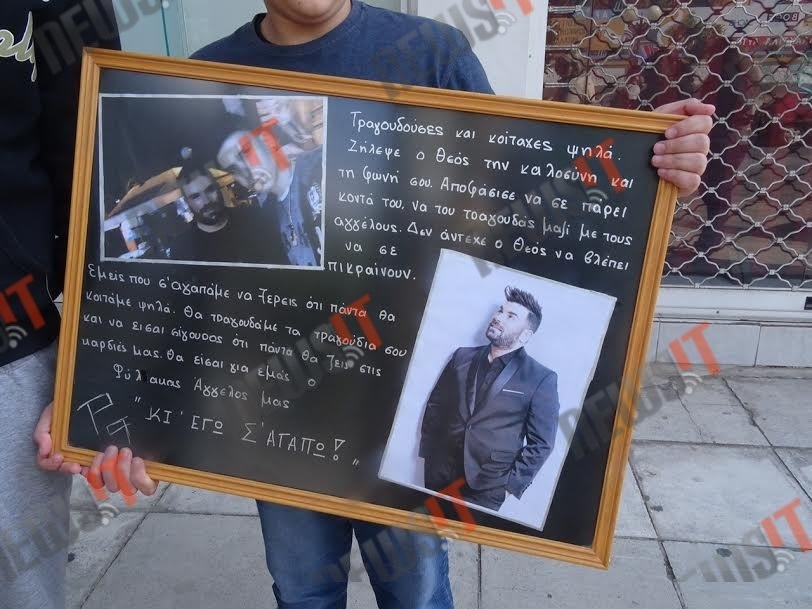 Τραγουδούσες και κοίταχες ψηλά.
Ζήλεψε ο Θεός την καλοσύνη και
τη φωνή σου. Αποφάσισε να σε πάρει
κοντά του, να του τραγουδάς μαζί με τους
αγγέλους. Δεν άντεχε ο Θεός να βλέπει
να σε
πικραίνουν.
Εμείς που σ'αγαπάμε να ξέρεις ότι πάντα θα
κοιτάμε ψηλά. Θα τραγουδάμε τα τραγούδια σου
και να είσαι σίγουρος ότι πάντα θα ζεις στις
καρδιές μας. Θα είσαι για εμάς ο
Φύλακας Άγγελος μας
"ΚΙ'ΕΓΩ Σ'ΑΓΑΠΩ!"
NEWSIT